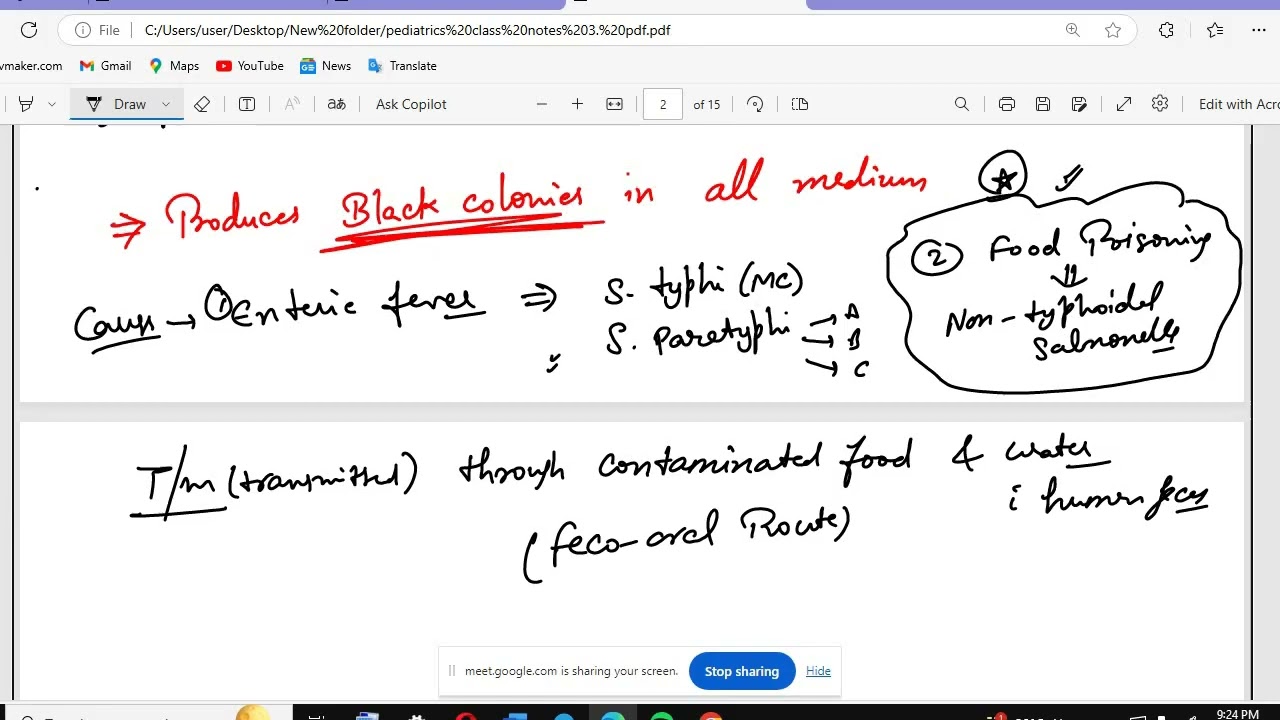 File C:/Users/user/Desktop/New%20folder/pediatrics%20class%20notes%203.%20pdf.pdf
vmaker.com Gmail Maps YouTube News Translate
Draw T A aあ Ask Copilot − + 2 of 15 Edit with Acro
⇒ Produces Black colonies in all medium
Cause → ① Enteric fever ⇒ S. typhi (MC)
S. Paratyphi → A
→ B
→ C
② Food Poisoning
⇓
Non-typhoidal
Salmonella
T/m (transmitted) through contaminated food & water
i human feces
(feco-oral Route)
meet.google.com is sharing your screen. Stop sharing Hide
9:24 PM